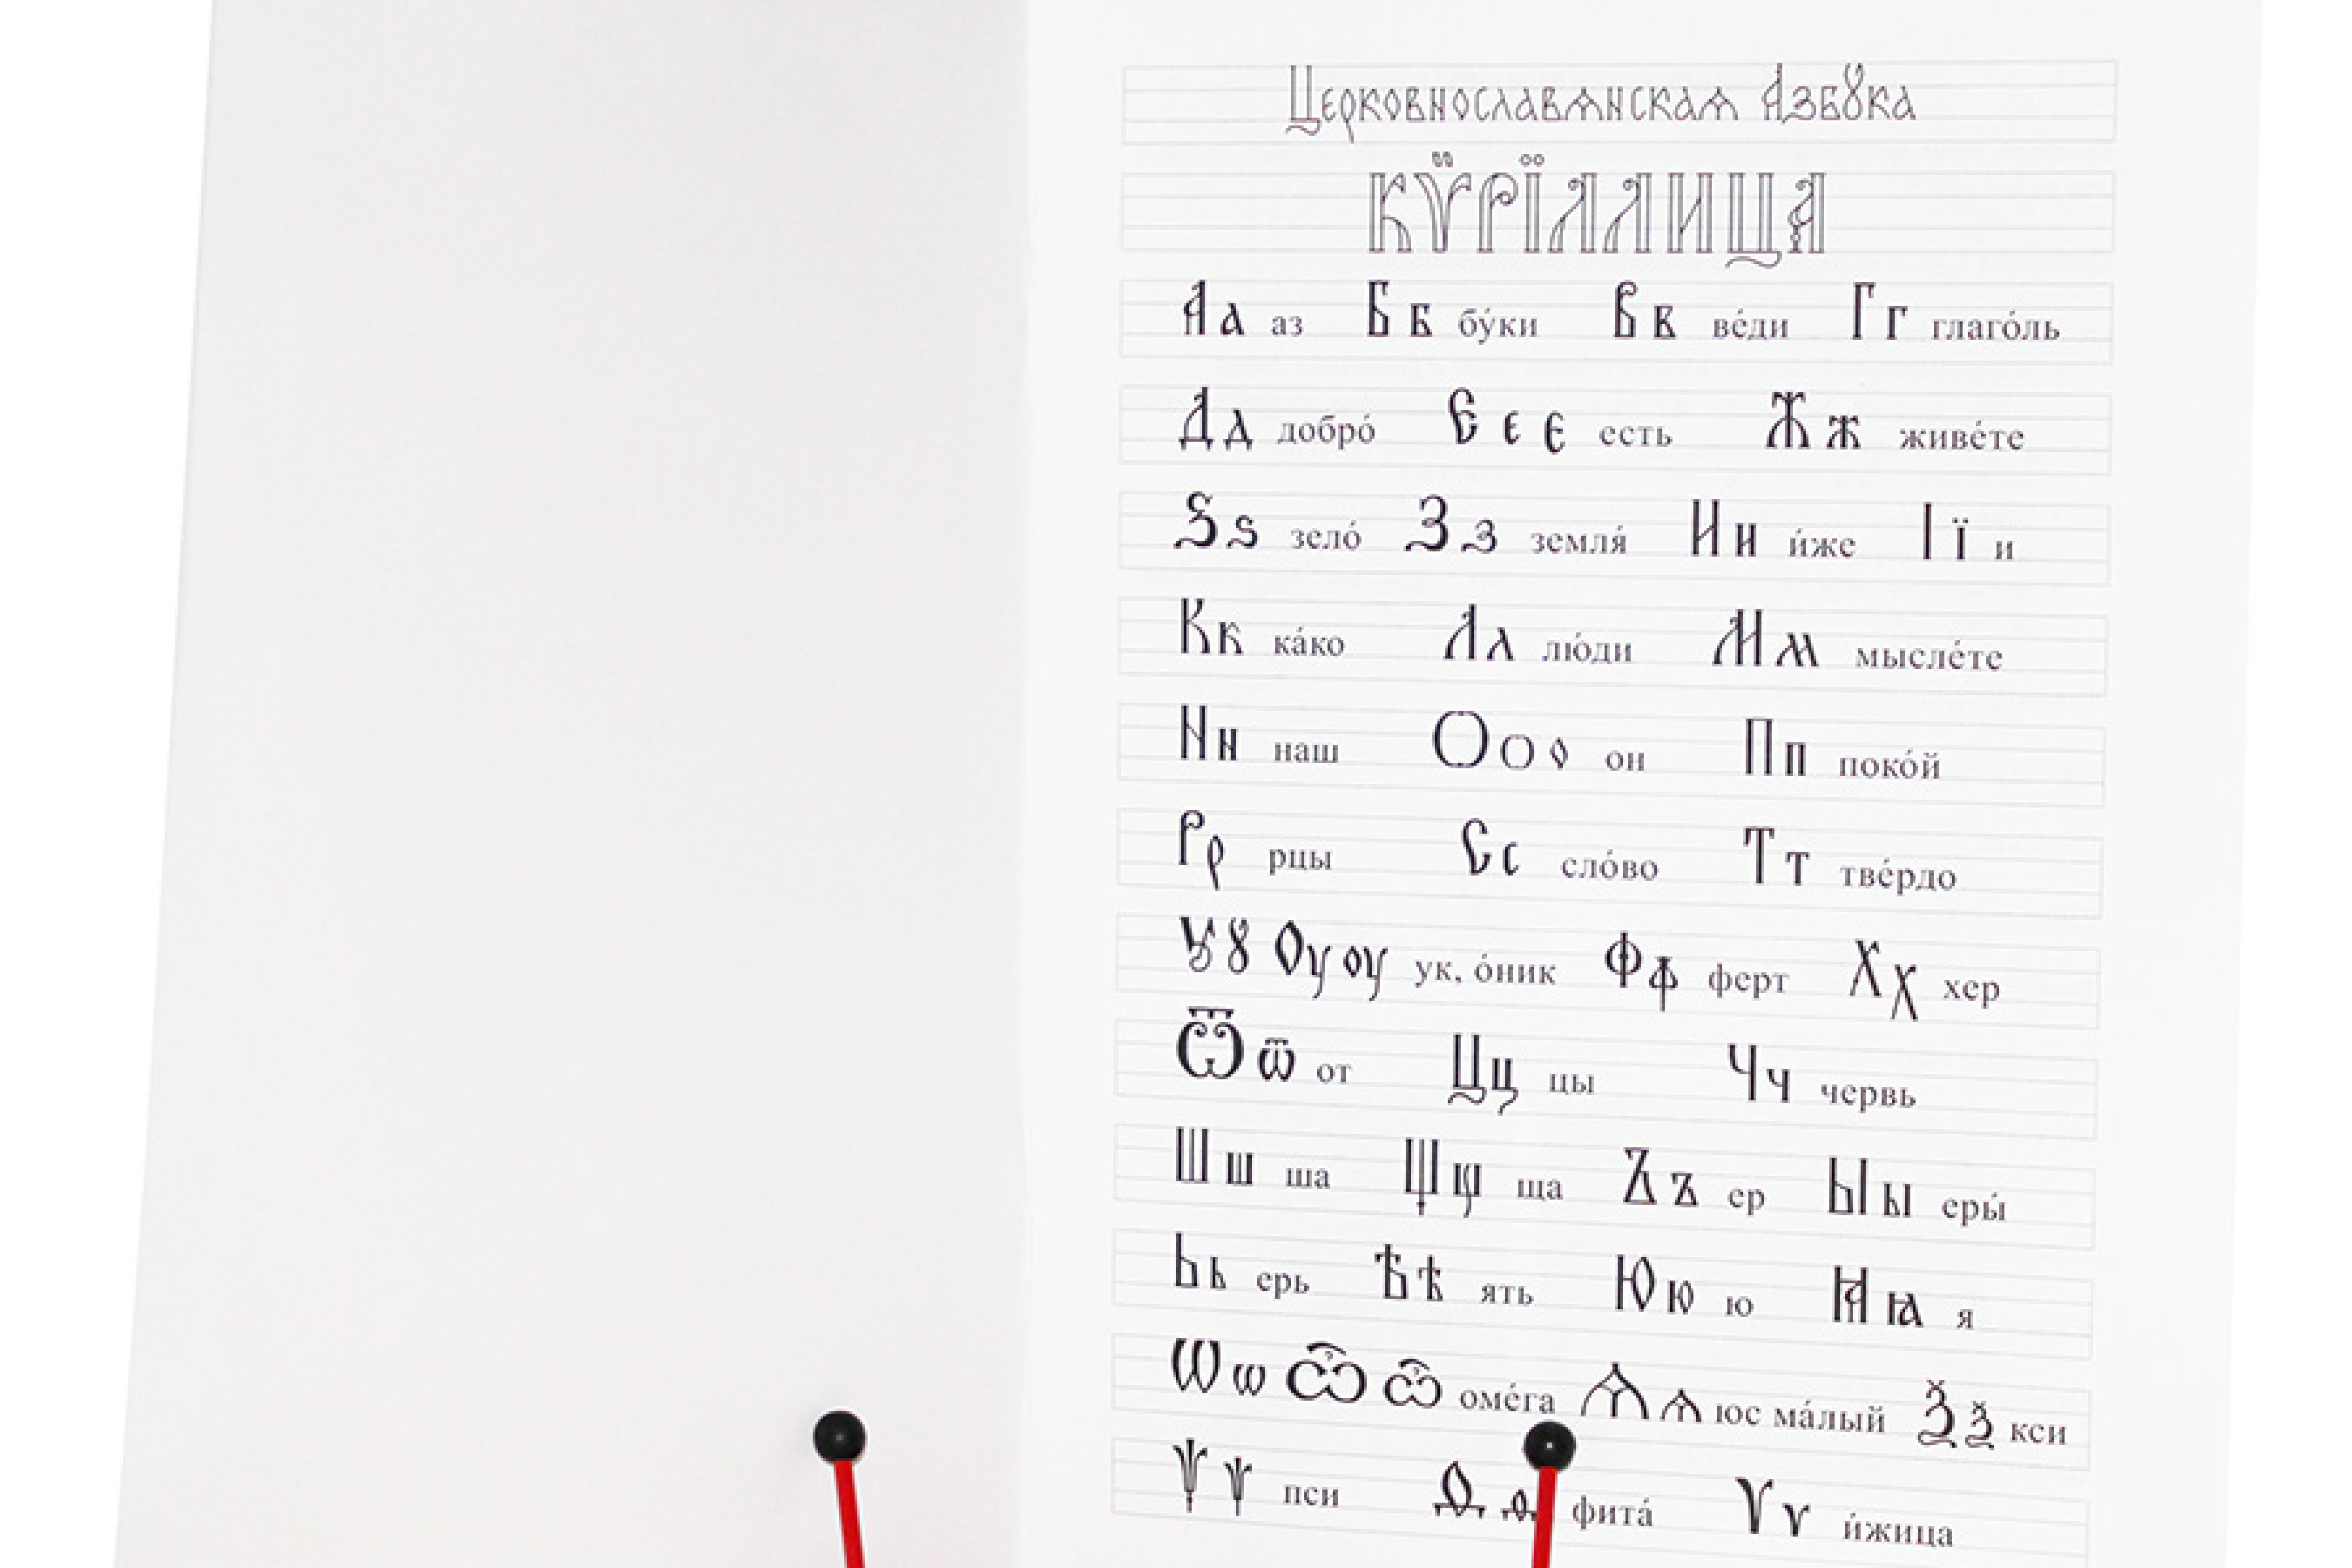 Церковнославѧнскаѧ Азбꙋка
КѴ̈РЇЛЛИЦА
А а аз Б б бу́ки В в ве́ди Г г глаго́ль
Д д добро́ Є е є есть Ж ж живе́те
Ѕ ѕ зело́ З з земля́ И и и́же І ї и
К к ка́ко Л л лю́ди М м мысле́те
Н н наш Ѻ ѻ о он П п поко́й
Р р рцы С с сло́во Т т тве́рдо
Ꙋ ꙋ Оу оу ук, о́ник Ф ф ферт Х х хер
Ѿ ѿ от Ц ц цы Ч ч червь
Ш ш ша Щ щ ща Ъ ъ ер Ы ы еры́
Ь ь ерь Ѣ ѣ ять Ю ю ю Ꙗ ꙗ я
Ѡ ѡ Ѽ ѽ оме́га Ѧ ѧ юс ма́лый Ѯ ѯ кси
Ѱ ѱ пси Ѳ ѳ фита́ Ѵ ѵ и́жица